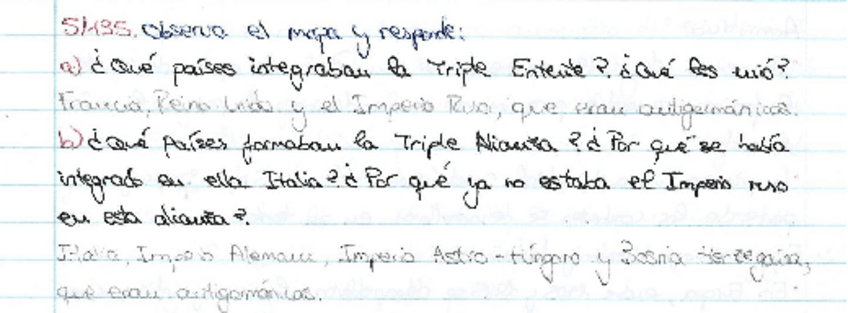 5/135. Observa el mapa y responde:
a) ¿Qué países integraban la Triple Entente? ¿Qué les unió?
Francia, Reino Unido y el Imperio Ruso, que eran antigemánicos.
b) ¿Qué países formaban la Triple Alianza? ¿Por qué se había
integrado en ella Italia? ¿Por qué ya no estaba el Imperio ruso
en esta alianza?.
Italia, Imperio Alemán, Imperio Astro-Húngaro y Bosnia Herzegoina,
que eran antigemánicos.